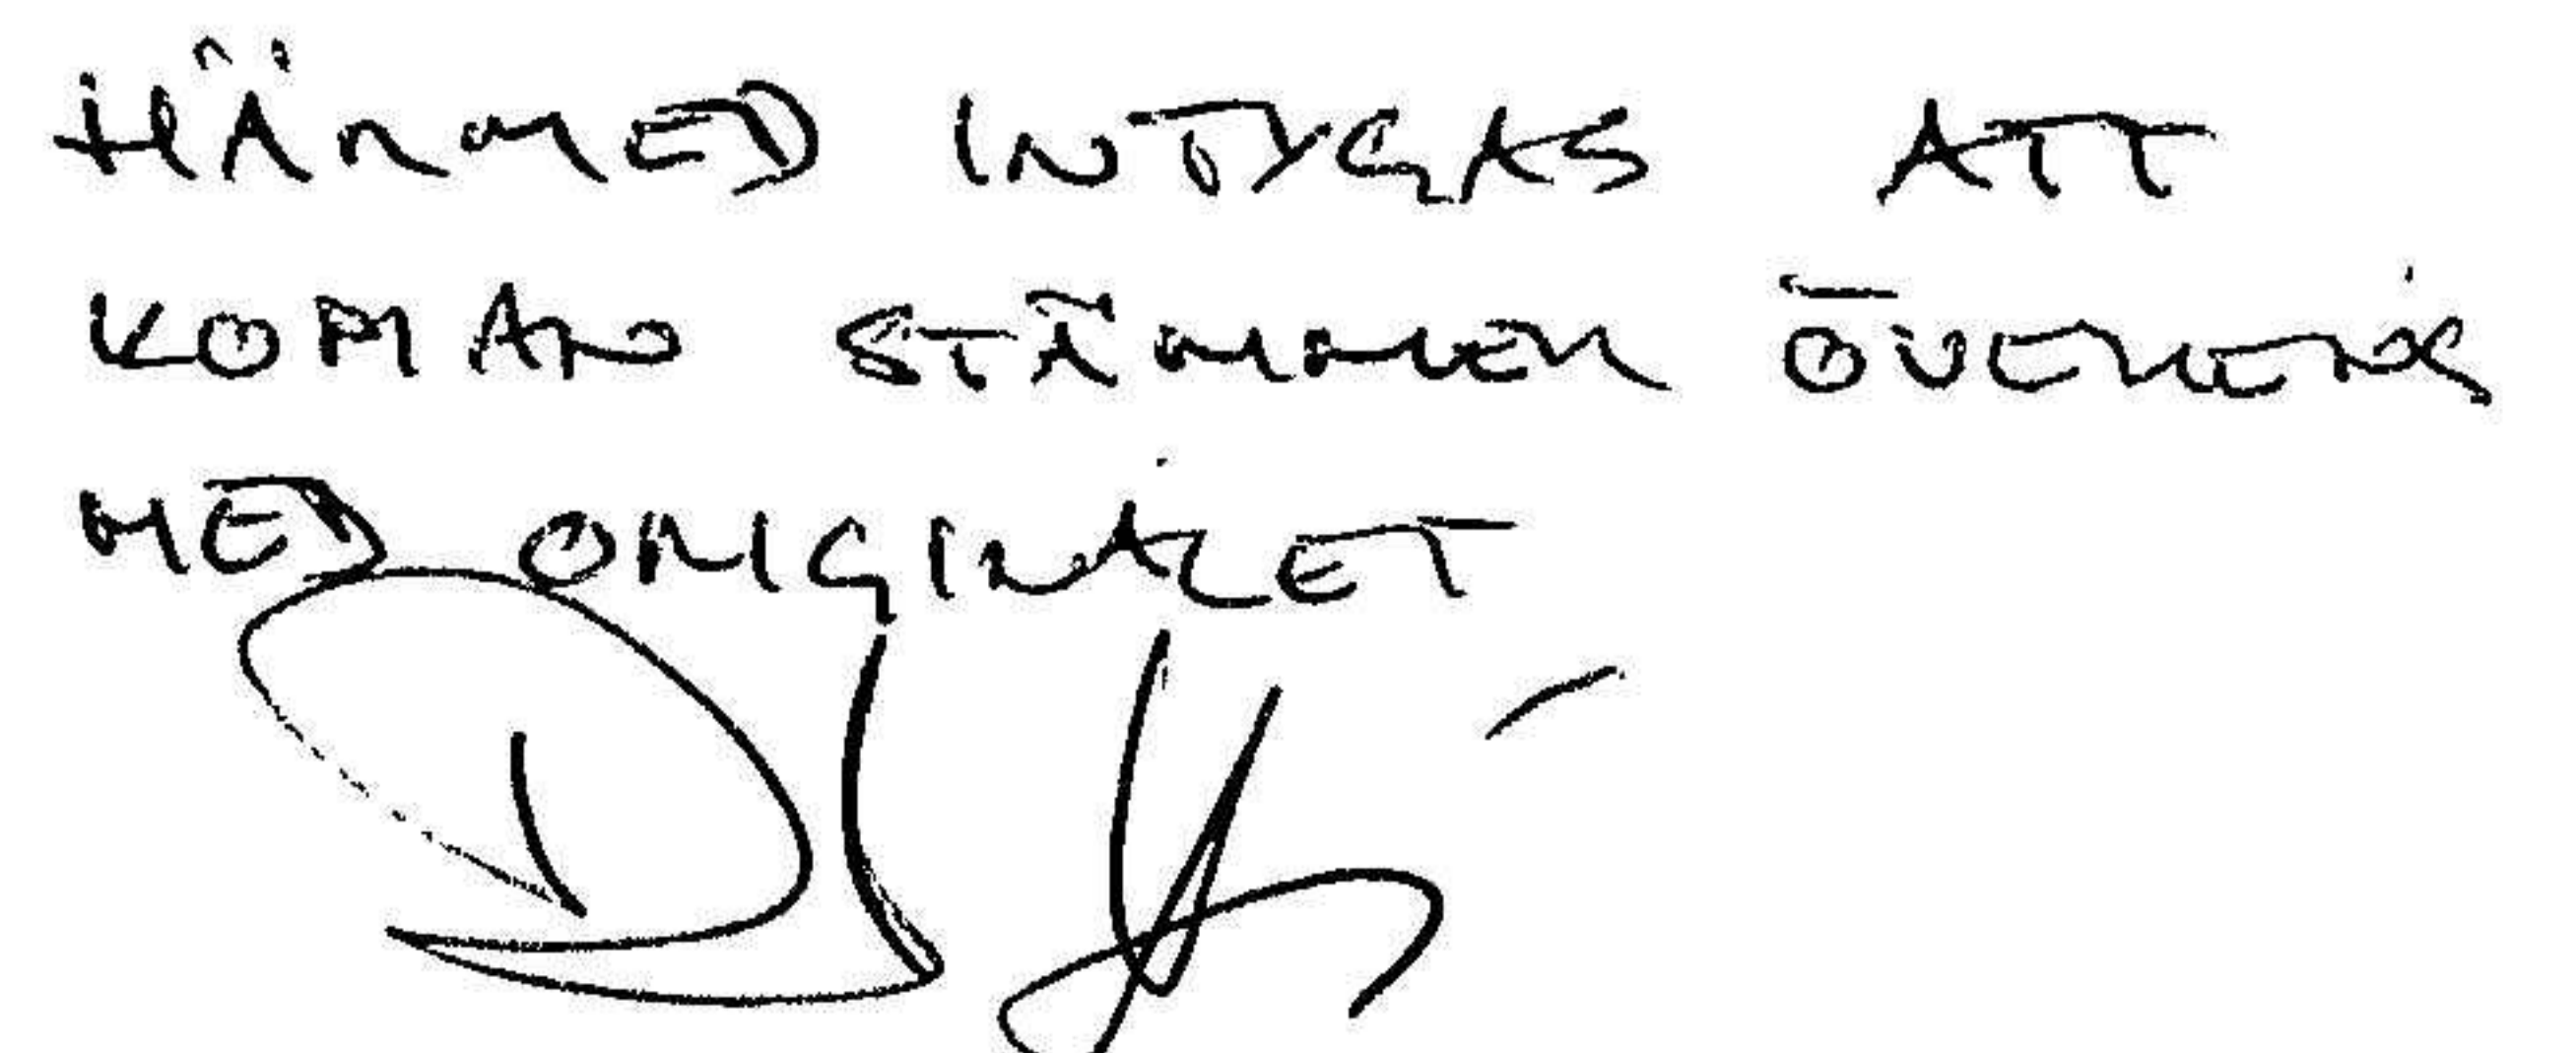 HÄRMED INTYGAS ATT
KOPIAN STÄMMER ÖVERENS
MED ORIGINALET